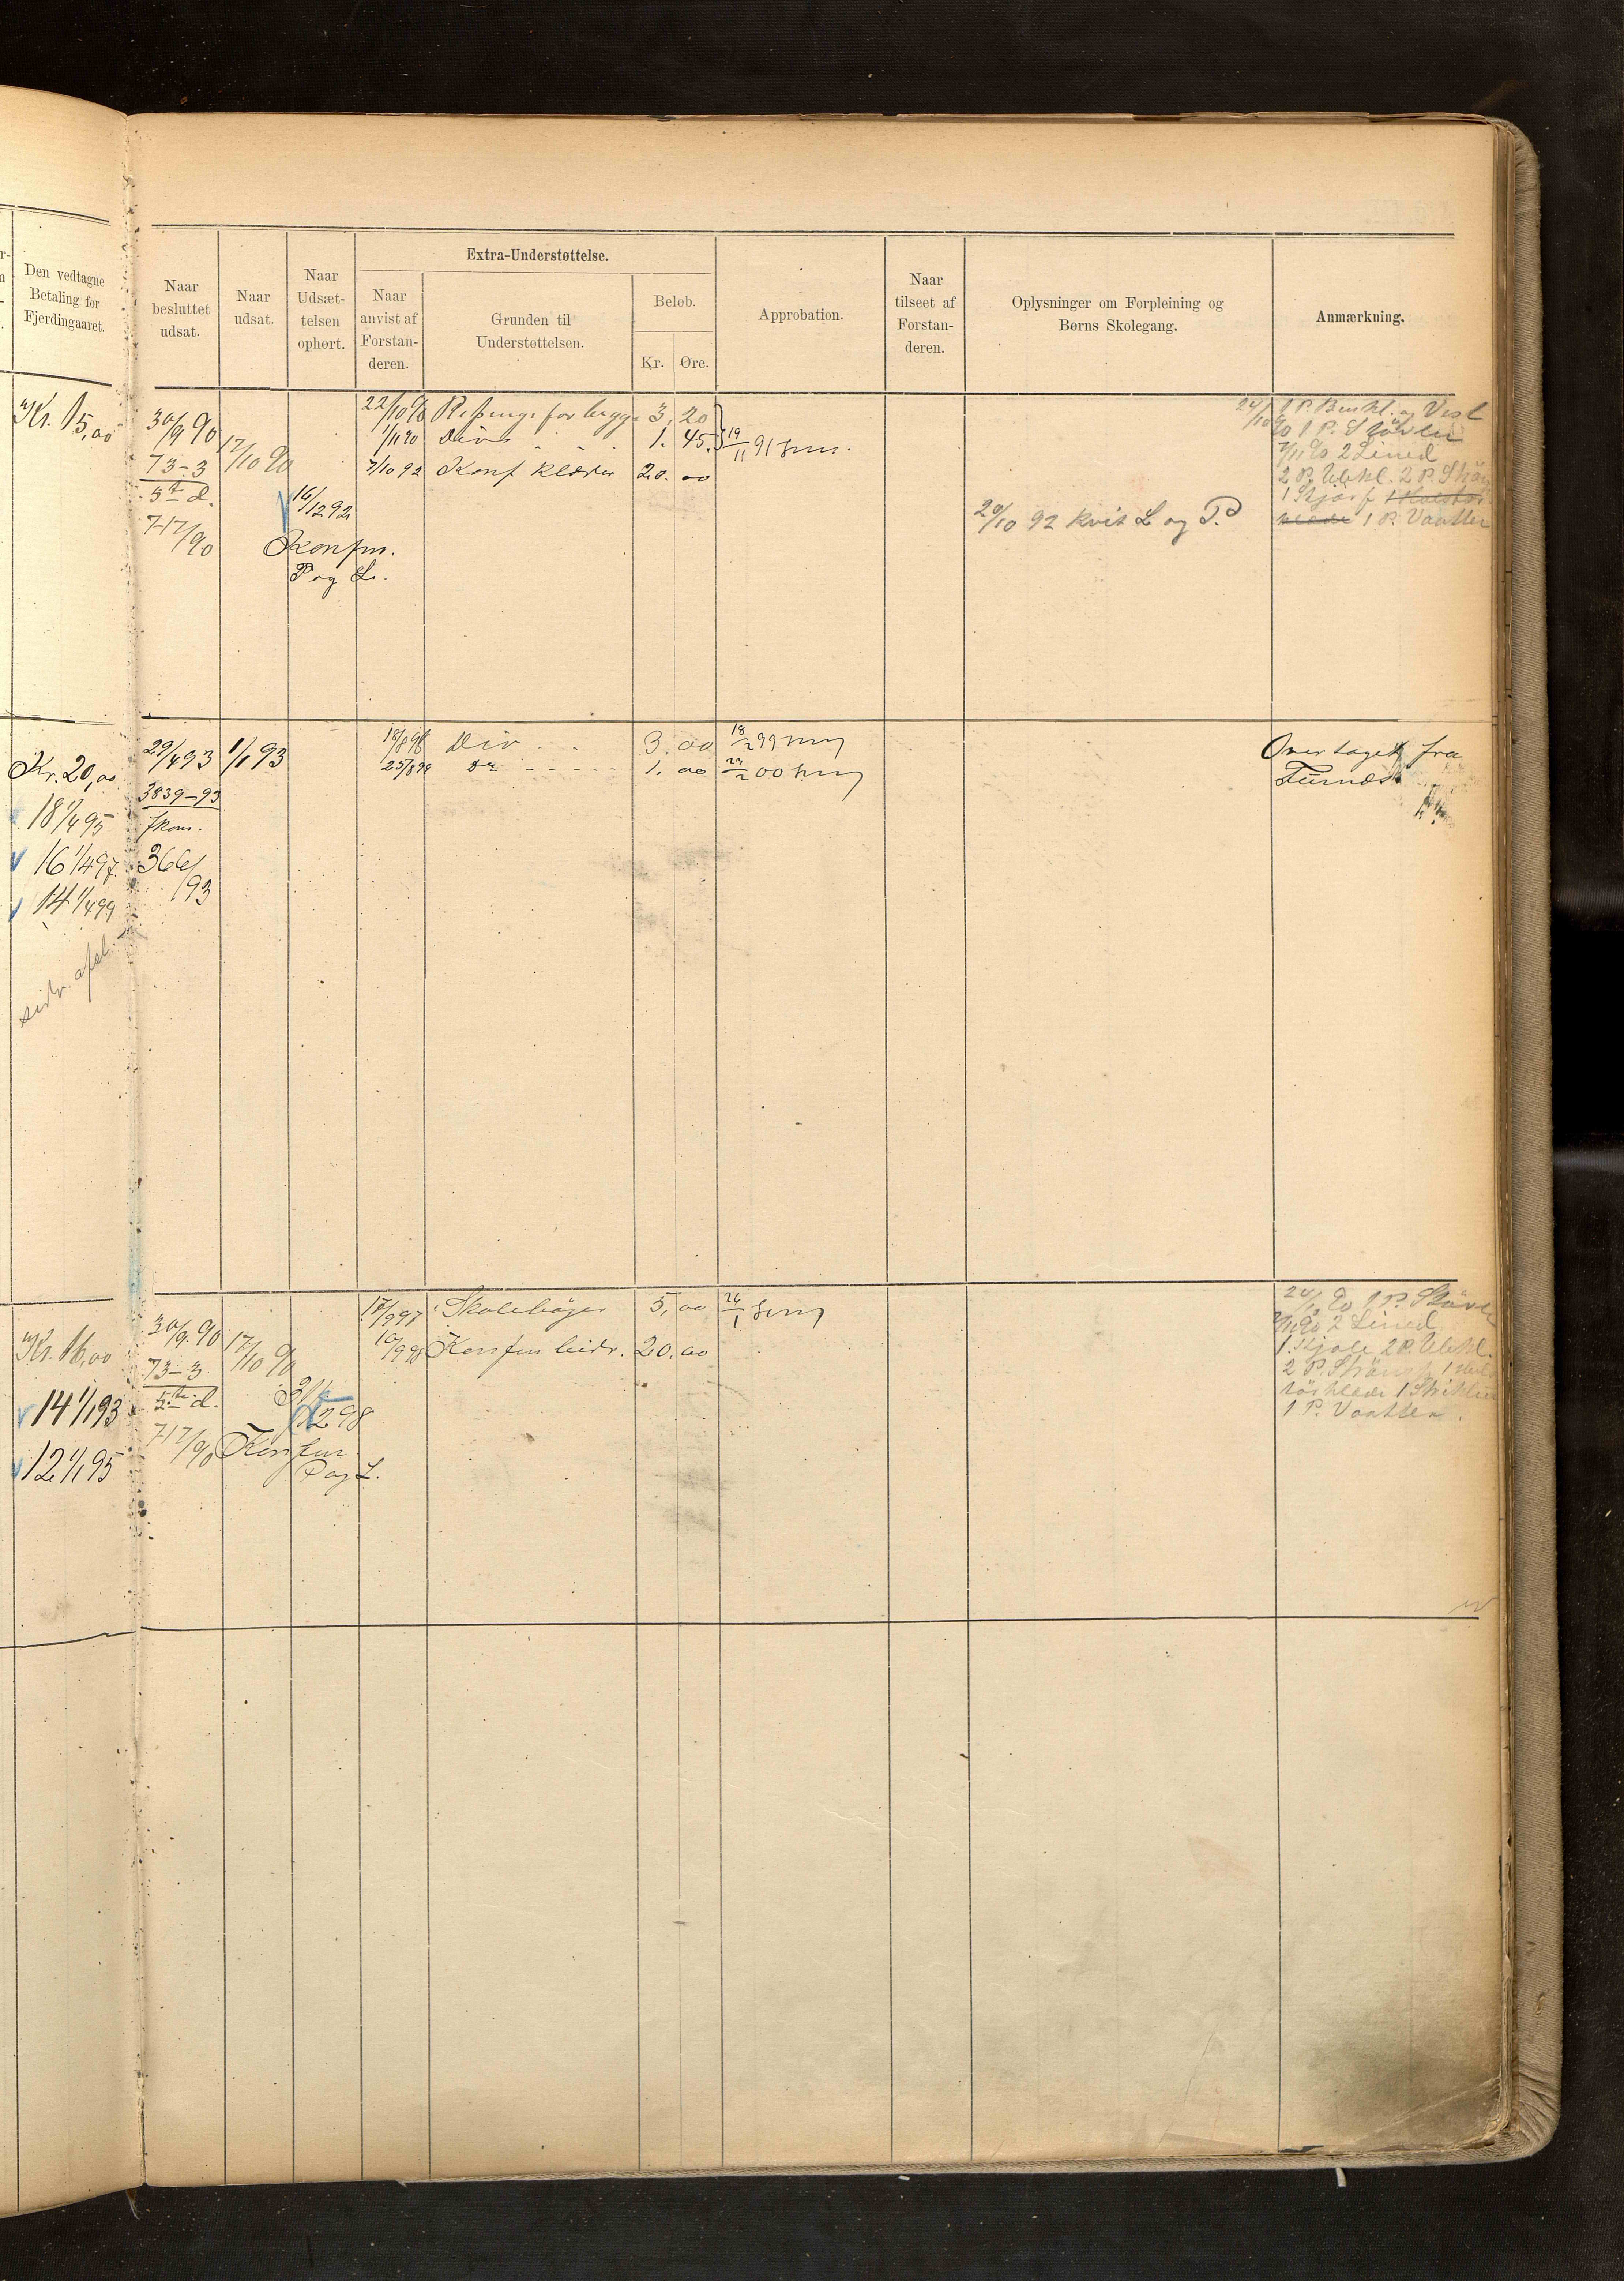 Den vedtagne
Betaling for
Fjerdingaaret.
Naar
besluttet
udsat.
Naar
udsat.
Naar
Udsæt-
telsen
ophørt.
Extra-Understøttelse.
Naar
anvist af
Forstan-
deren.
Grunden til
Understøttelsen.
Beløb.
Kr. Øre.
Approbation.
Naar
tilseet af
Forstan-
deren.
Oplysninger om Forpleining og
Børns Skolegang.
Anmærkning.
Kr. 15,00
30/9 90
73-3
5te d.
717/90
17/10 90
16/12 92
Konfm.
P og L.
22/10 90 for begge 3, 20
1/11 90 Divs 1. 45.
7/10 92 Konf klæder 20. 00
19/11 91
20/10 92 kvit L og P.
24/10 90 1 P. Benkl. og Vest
1 P. Støvler
7/11 90 2 Lined
2 P. Ulekl. 2 P. Strø
1 Skjærf
1 P. Vaatter
Kr. 20,00
18 1/4 95
16 1/4 97.
14 1/4 99
29/4 93
3839-93
fkom.
366/93
1/1 93
18/8 98 Div 3. 00
25/8 99 Do 1. 00
18/2 99
24/2 00
Overtaget fra
Kr. 16,00
14 1/1 93
12 1/1 95
30/9 90
73-3
5te d.
717/90
17/10 90
12 98
Konfm.
P og L.
17/9 97 Skolebøger 5, 00
10/9 98 Konfm bidr. 20, 00
26/1
24/10 90 1 P. Støvl
7/11 90 2 Lined
1 Kjole 2 P. Ulekl.
2 P. Strøm
1 P. Vaatter.